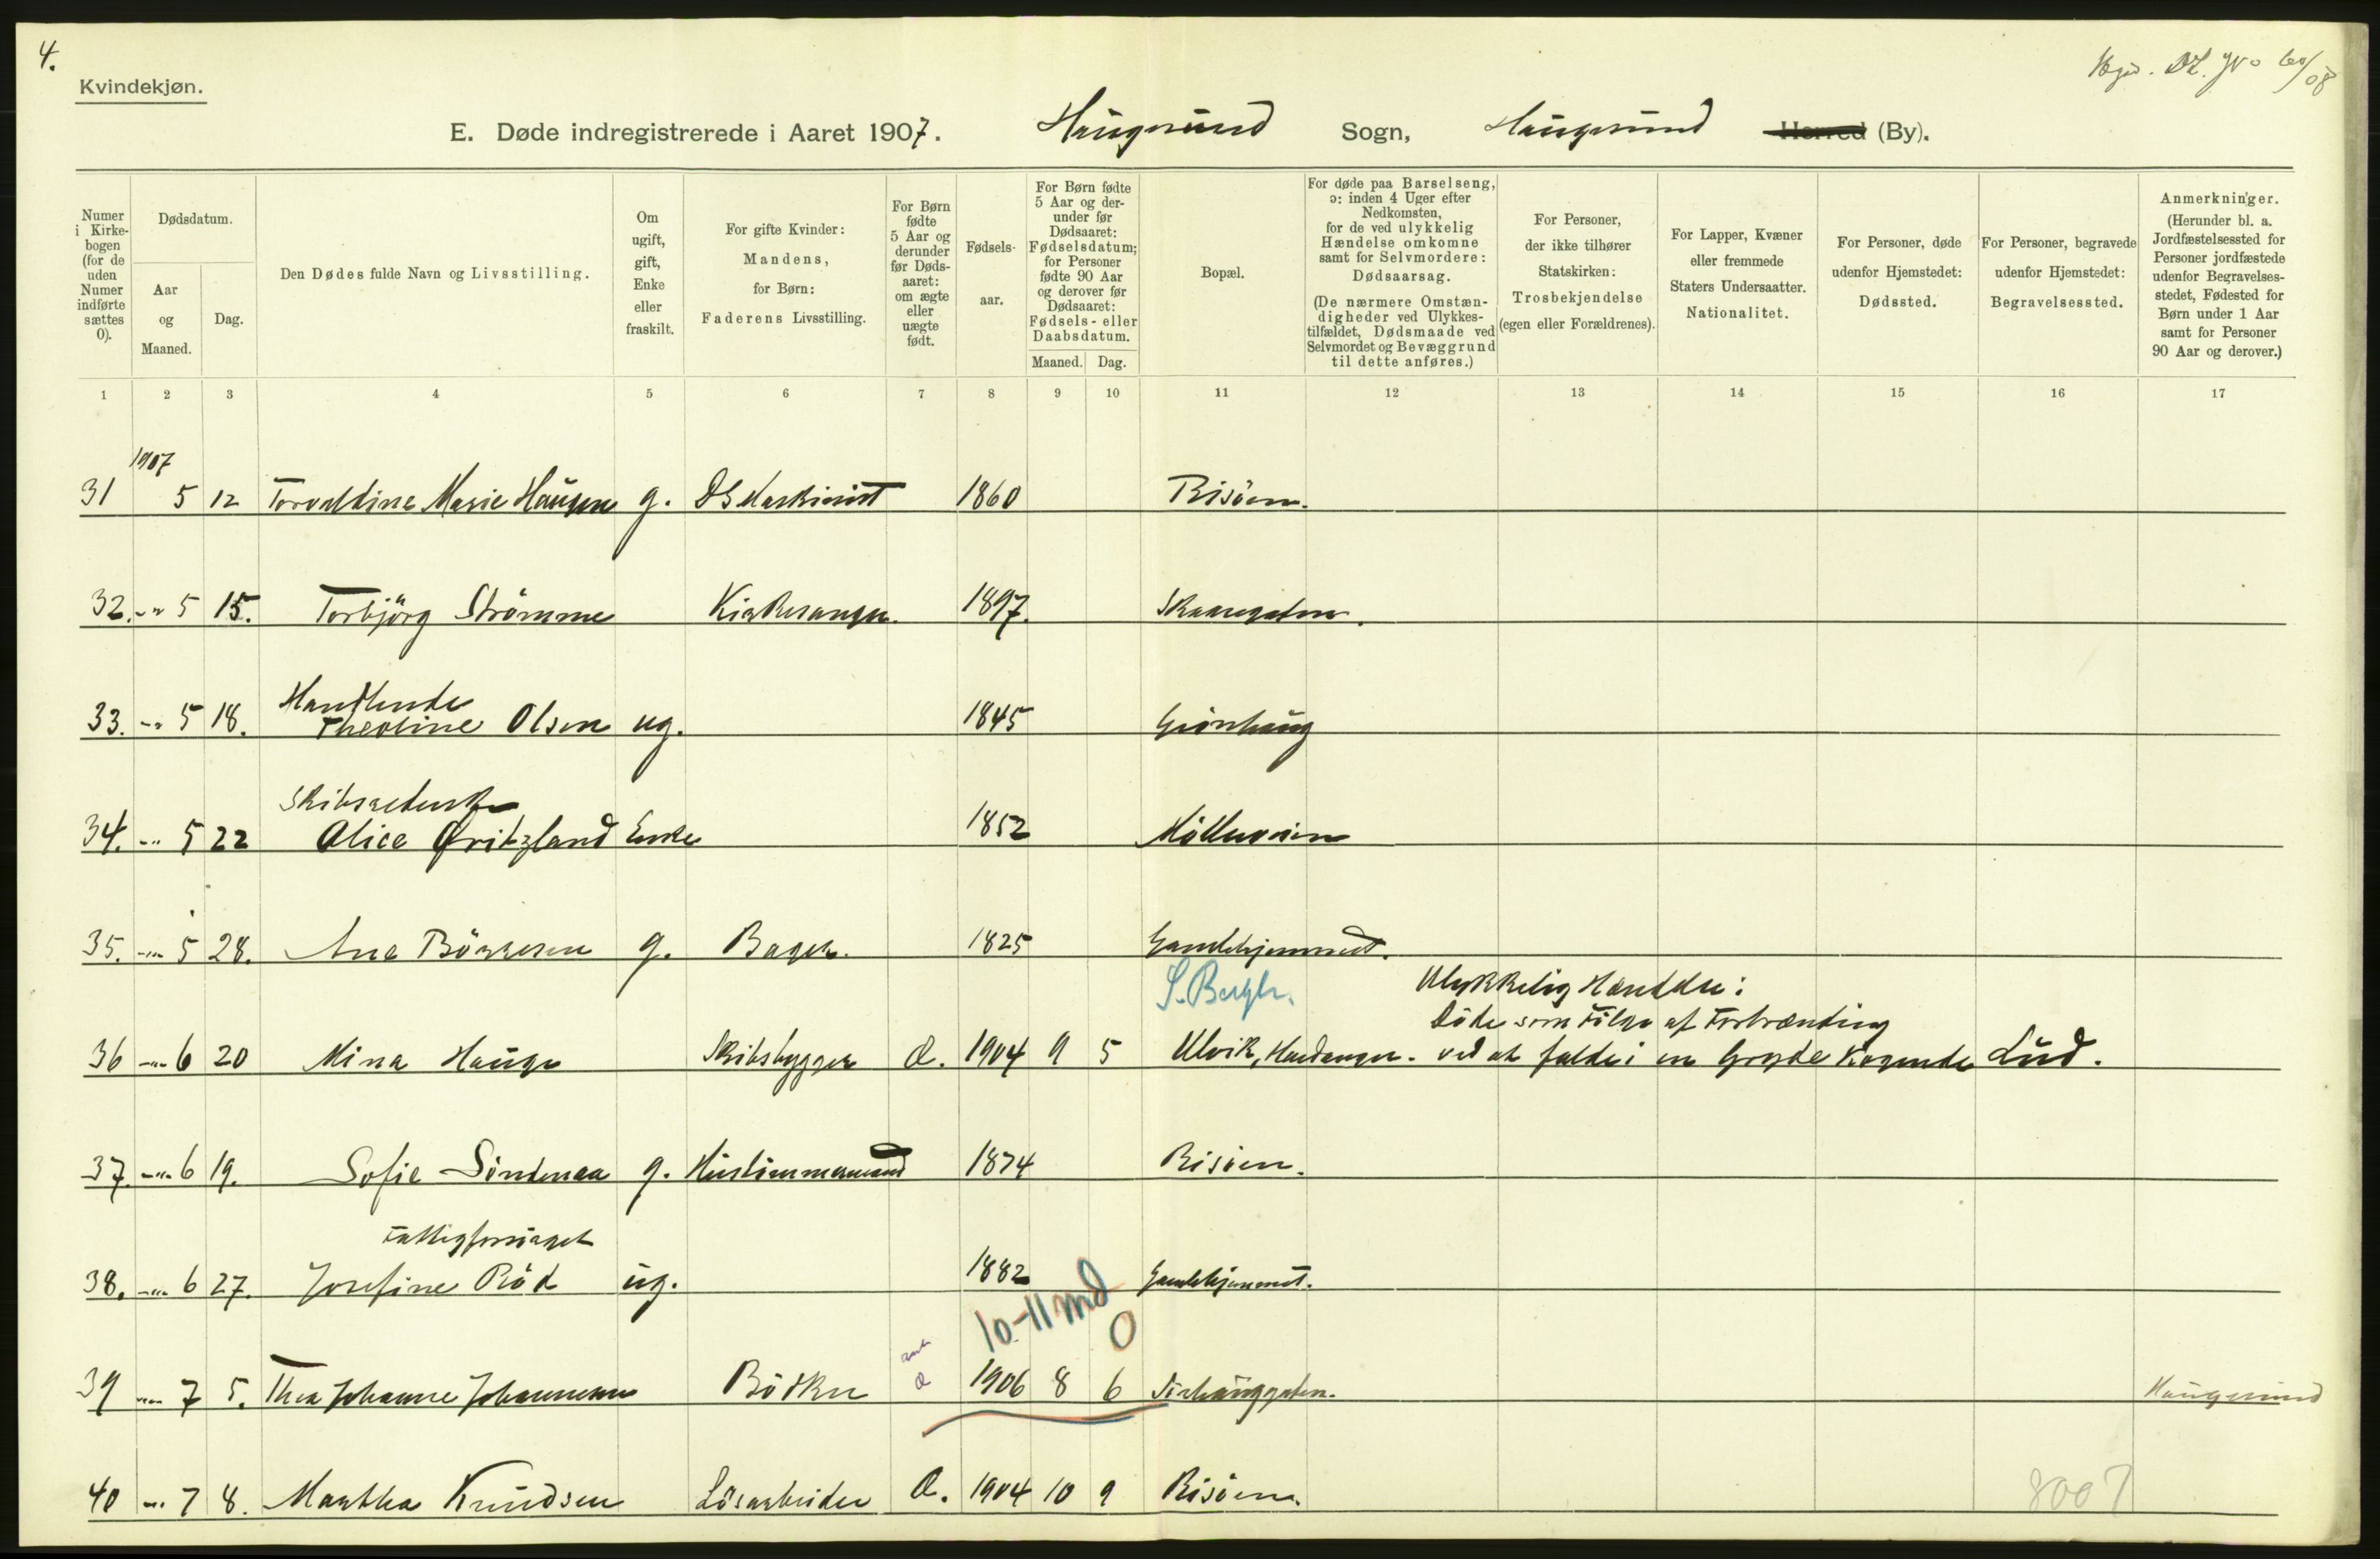 4.
Kvindekjøn.
E. Døde indregistrerede i Aaret 1907. Haugesund Sogn, Haugesund Herred (By).
Numer i Kirkebogen (for de uden Numer indførte sættes 0).
Dødsdatum.
Aar og Maaned.
Dag.
Den Dødes fulde Navn og Livsstilling.
Om ugift, gift, Enke eller fraskilt.
For gifte Kvinder: Mandens, for Børn: Faderens Livsstilling.
For Børn fødte 5 Aar og derunder før Dødsaaret: om ægte eller uægte født.
Fødselsaar.
For Børn fødte 5 Aar og derunder før Dødsaaret: Fødselsdatum; for Personer fødte 90 Aar og derover før Dødsaaret: Fødsels- eller Daabsdatum.
Maaned. Dag.
Bopæl.
For døde paa Barselseng, ɔ: inden 4 Uger efter Nedkomsten, for de ved ulykkelig Hændelse omkomne samt for Selvmordere: Dødsaarsag.
(De nærmere Omstændigheder ved Ulykkestilfældet, Dødsmaade ved Selvmordet og Bevæggrund til dette anføres.)
For Personer, der ikke tilhører Statskirken: Trosbekjendelse (egen eller Forældrenes).
For Lapper, Kvæner eller fremmede Staters Undersaatter. Nationalitet.
For Personer, døde udenfor Hjemstedet: Dødssted.
For Personer, begravede udenfor Hjemstedet: Begravelsessted.
Anmerkninger. (Herunder bl. a. Jordfæstelsessted for Personer jordfæstede udenfor Begravelsesstedet, Fødested for Børn under 1 Aar samt for Personer 90 Aar og derover.)
1 2 3 4 5 6 7 8 9 10 11 12 13 14 15 16 17
1907
31 5 12 Torvaldine Marie Haugen g. DSMaskinist 1860 Risöen.
32. -"- 5 15. Torbjörg Strömme Kirkesanger. 1897. Skaaregaten.
Handlende
33. -"- 5 18. Theoline Olsen ug. 1845 Grönhaug
34. -"- 5 22 Alice Qvitzland Enke 1852
35. -"- 5 28. Ane Börresen g. Bager. 1825 Gamlehjemmet.
S. Bergh.
Ulykkelig Hændelse:
Döde som Fölge af Forbrænding
36 -"- 6 20 Mina Hauge Skibsbygger Æ. 1904 9 5 Ulvik, Hardanger. ved at falde i en Gryde kogende Lud.
37. -"- 6 19. Sofie Söndenaa g. Hustömmermand 1874 Risöen.
Fattigforsörget
38. -"- 6 27. Josefine Röd ug. 1882 Gamlehjemmet.
10-11 md
0
39 -"- 7 5. Thea Johanne Johannesen Bödker æ 1906 8 6 Sörhauggaten. Haugesund
40 -"- 7 8. Martha Knudsen Lösarbeider Æ. 1904 10 9 Risöen.
8007